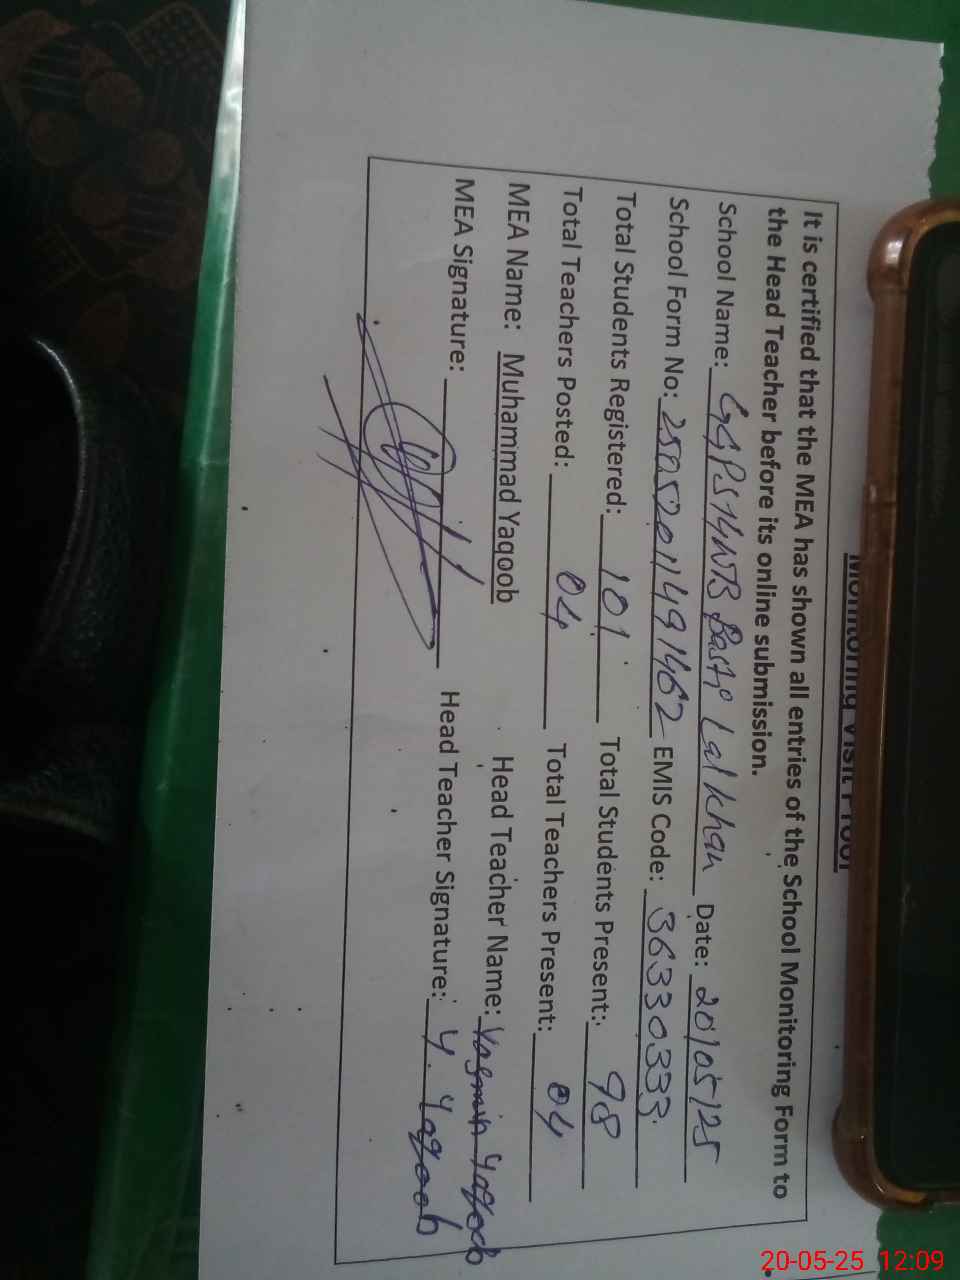 Monitoring Visit Proof
It is certified that the MEA has shown all entries of the School Monitoring Form to
the Head Teacher before its online submission.
School Name: GGPS 14WB Basti Lal Khan Date: 20/05/25
School Form No: 25052011491462 EMIS Code: 36330333
Total Students Registered: 101 Total Students Present: 98
Total Teachers Posted: 04 Total Teachers Present: 04
MEA Name: Muhammad Yaqoob Head Teacher Name: Yasmin Yaqoob
MEA Signature: Head Teacher Signature: Y. Yaqoob
20-05-25 12:09